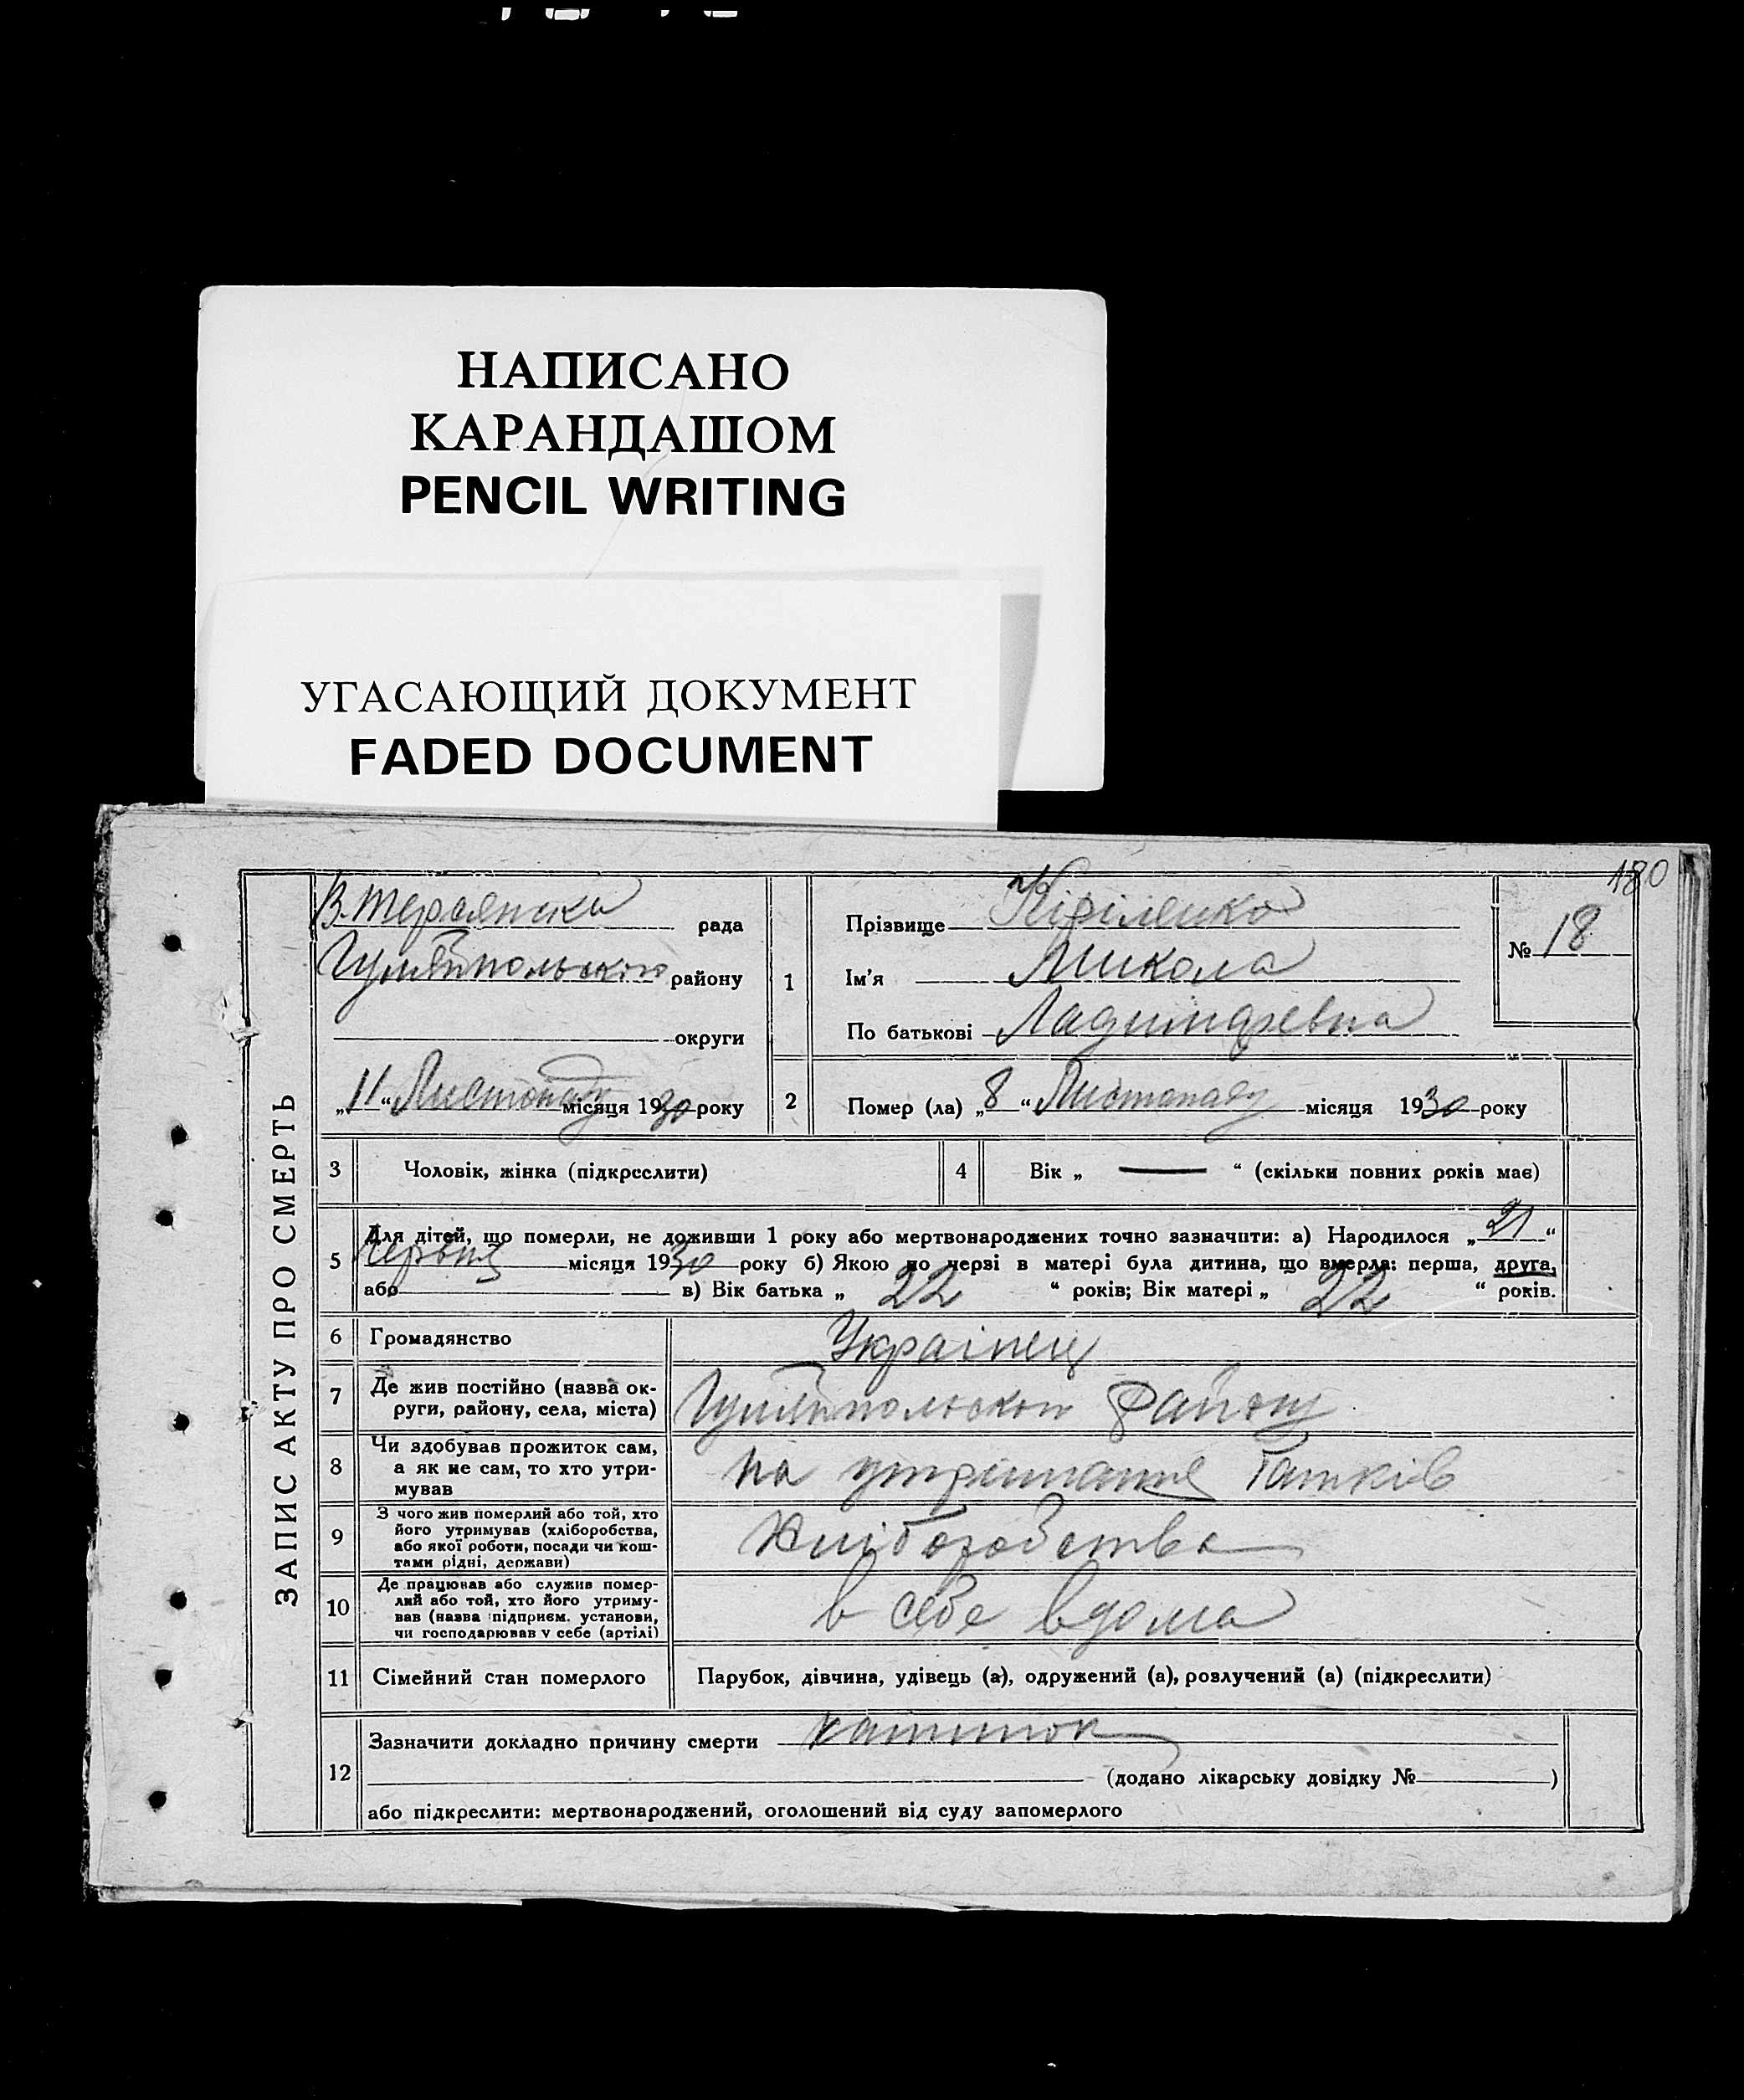 НАПИСАНО
КАРАНДАШОМ
PENCIL WRITING
УГАСАЮЩИЙ ДОКУМЕНТ
FADED DOCUMENT
180
ЗАПИС АКТУ ПРО СМЕРТЬ
рада
району
округи
„11“ Листопаду місяця 1930 року
1
Прізвище Кіріленко
Ім'я Микола
По батькові
№ 18
2 Помер (ла) „8“ Листопаду місяця 1930 року
3 Чоловік, жінка (підкреслити)
4 Вік „ — “ (скільки повних років має)
5 Для дітей, що померли, не доживши 1 року або мертвонароджених точно зазначити: а) Народилося „21“
Червня місяця 1930 року б) Якою по черзі в матері була дитина, що вмерла: перша, друга,
або в) Вік батька „ 22 “ років; Вік матері „ 22 “ років.
6 Громадянство Украінец
7 Де жив постійно (назва ок-
руги, району, села, міста) Району
8 Чи здобував прожиток сам,
а як не сам, то хто утри-
мував На батьків
9 З чого жив померлий або той, хто
його утримував (хліборобства,
або якої роботи, посади чи кош-
тами рідні, держави) Хліборобства
10 Де працював або служив помер-
лий або той, хто його утриму-
вав (назва підприєм. установи,
чи господарював у себе (артілі) в себе вдома
11 Сімейний стан померлого Парубок, дівчина, удівець (а), одружений (а), розлучений (а) (підкреслити)
12 Зазначити докладно причину смерти
(додано лікарську довідку № )
або підкреслити: мертвонароджений, оголошений від суду запомерлого